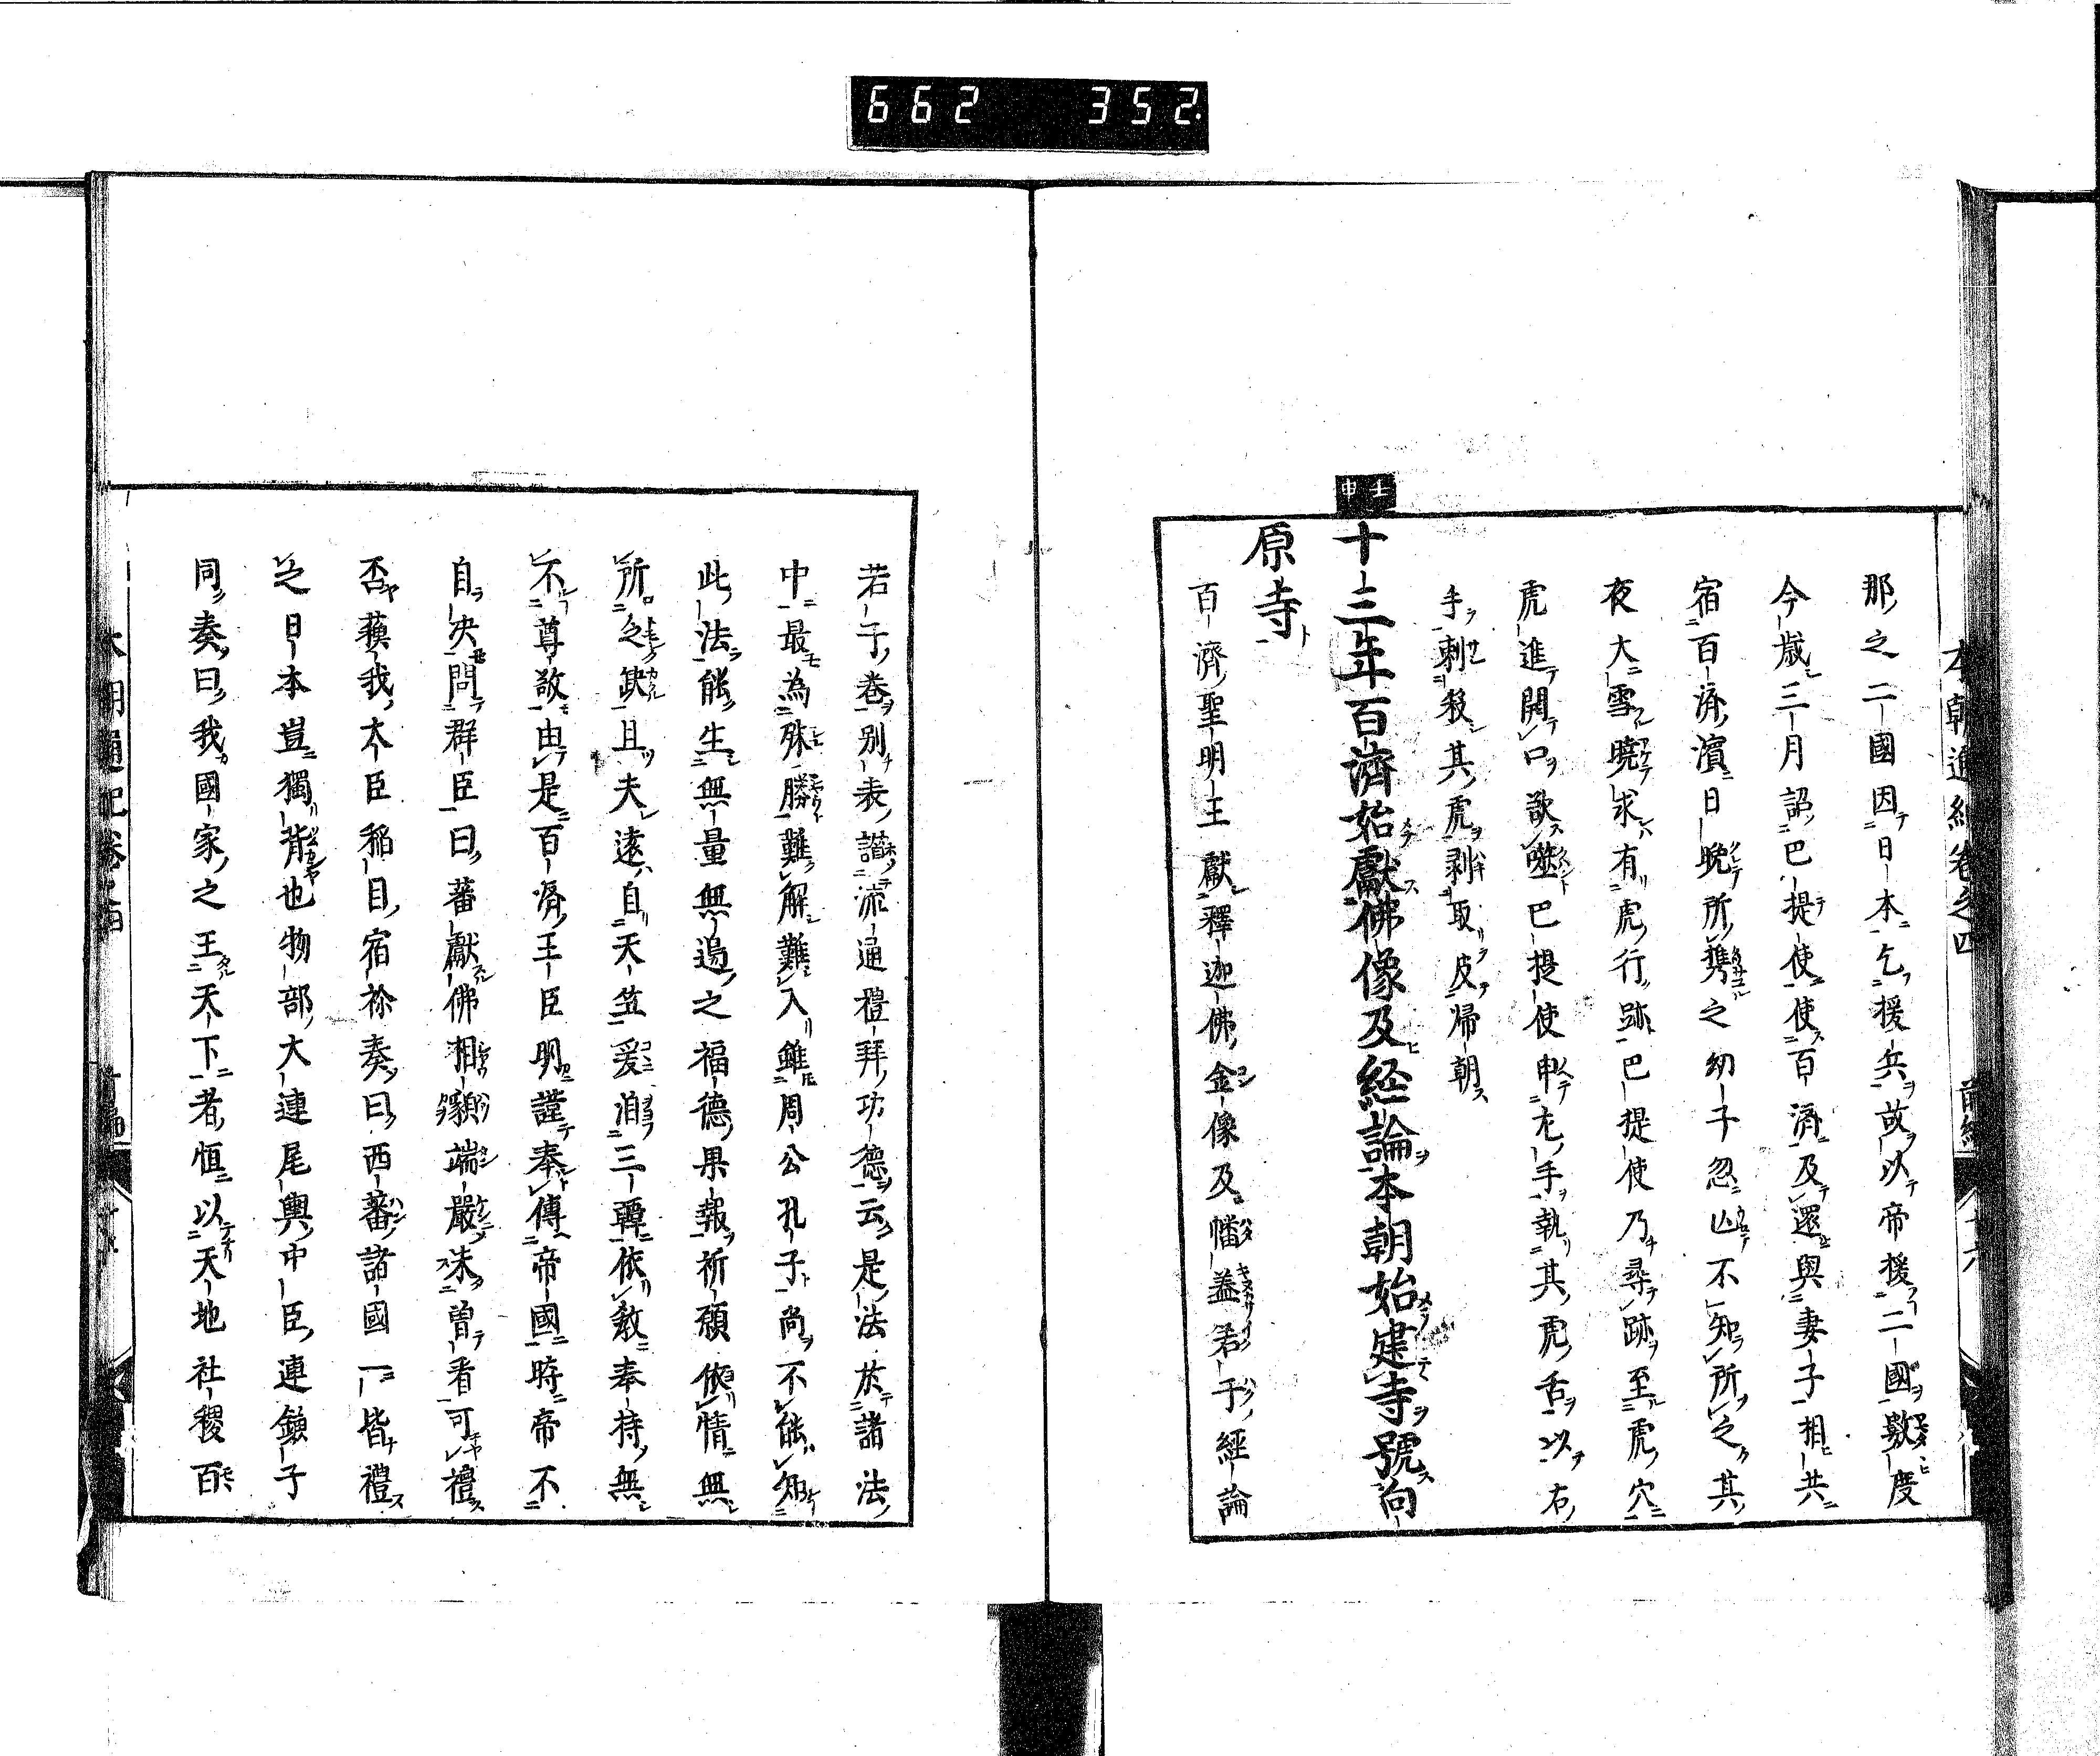 662 352
本朝通紀卷之四 前編 十六
那之二國因日本乞援兵故以帝援二國數度
今歳三月詔巴提使使百濟及還與妻子相共
宿百濟濱日晩所携之幼子忽亾不知所之其
夜大雪曉求有虎行跡巴提使乃尋跡至虎穴
虎進開口欲噬巴提使申左手執其虎舌以右
手刺殺其虎剥取皮帰朝
壬申
十三年百濟始獻佛像及経論本朝始建寺號向
原寺
百濟聖明王獻釋迦佛金像及幡蓋若干經論
若干卷別表讃流通禮拜功德云是法於諸法
中最為殊勝難解難入雖周公孔子尚不能知
此法能生無量無邉之福德果報祈願依情無
所之缺且夫遠自天笠爰洎三韓依敎奉持無
不尊敬由是百濟王臣明謹奉傳帝國時帝不
自决問群臣曰蕃獻佛相貌端嚴未曽看可禮
否蘓我大臣稲目宿祢奏曰西蕃諸國一皆禮
之日本豈獨背也物部大連尾輿中臣連鎌子
同奏曰我國家之王天下者恒以天地社稷百
本朝通紀卷之四